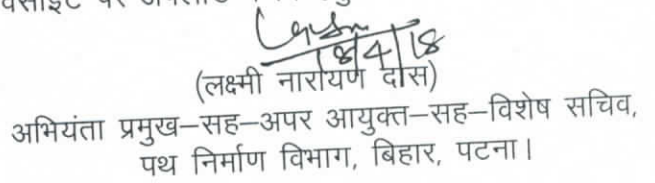 पर
18/4/18
(लक्ष्मी नारायण दास)
अभियंता प्रमुख–सह–अपर आयुक्त–सह–विशेष सचिव,
पथ निर्माण विभाग, बिहार, पटना।